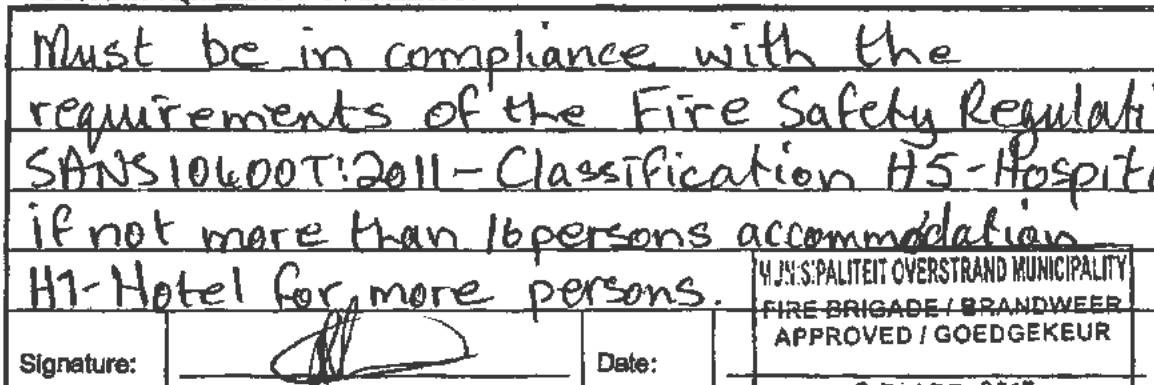 Must be in compliance with the
requirements of the Fire Safety Regulati
SANS10400T:2011 - Classification H5-Hospita
if not more than 16 persons accommodation
H1-Hotel for more persons.
MUNISIPALITEIT OVERSTRAND MUNICIPALITY
FIRE BRIGADE / BRANDWEER
APPROVED / GOEDGEKEUR
Signature:
Date: